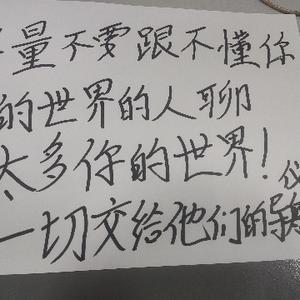 量不要跟不懂你
的世界的人聊
太多你的世界！
一切交给他们的